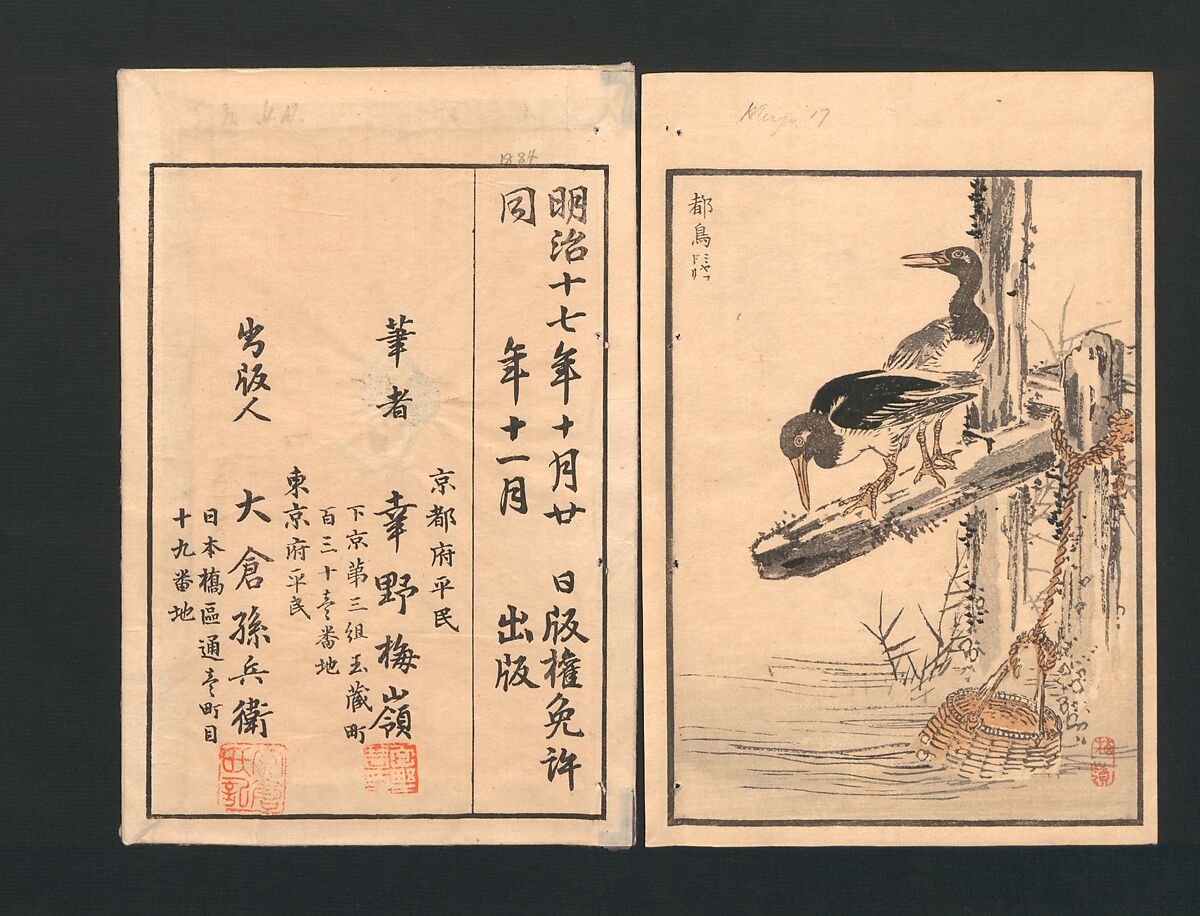 Meiji 17
都鳥
ミヤコ
ドリ
梅嶺
1884
明治十七年十月廿 日版權免許
同 年十一月 出版
京都府平民
筆者 幸野梅嶺
下京第三組玉蔵町
百三十壱番地
東京府平民
出版人 大倉孫兵衛
日本橋區通壱町目
十九番地